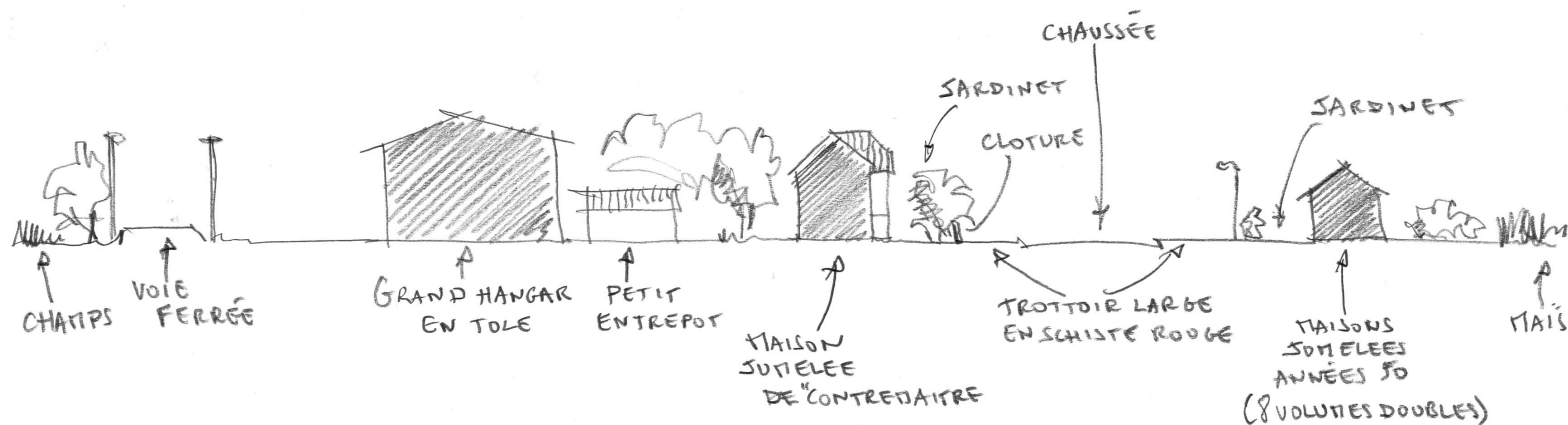 CHAUSSÉE
JARDINET
CLOTURE
JARDINET
CHAMPS
VOIE
FERRÉE
GRAND HANGAR
EN TOLE
PETIT
ENTREPOT
MAISON
JUMELEE
DE "CONTREMAITRE
TROTTOIR LARGE
EN SCHISTE ROUGE
MAISONS
JUMELEES
ANNÉES 50
(8 VOLUMES DOUBLES)
MAÏS